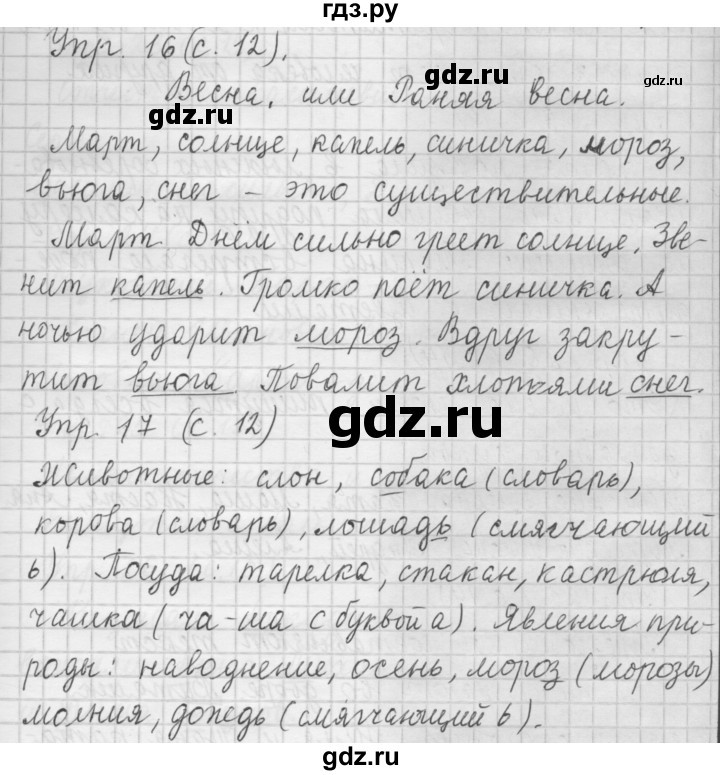 гдз.ру
Упр. 16 (с. 12).
gdz.ru gdz.ru
Весна, или Ранняя весна.
gdz.ru
Март, солнце, капель, синичка, мороз,
вьюга, снег – это существительные.
Март. Днём сильно греет солнце. Зве-
нит капель. Громко поёт синичка. А
ночью ударит мороз. Вдруг закру-
тит вьюга. Повалит хлопьями снег.
Упр. 17 (с. 12)
gdz.ru
Животные: слон, собака (словарь),
корова (словарь), лошадь (смягчающий
ь). Посуда: тарелка, стакан, кастрюля,
чашка (ча-ша с буквой а). Явления при-
роды: наводнение, осень, мороз (морозы)
молния, дождь (смягчающий ь).
gdz.ru